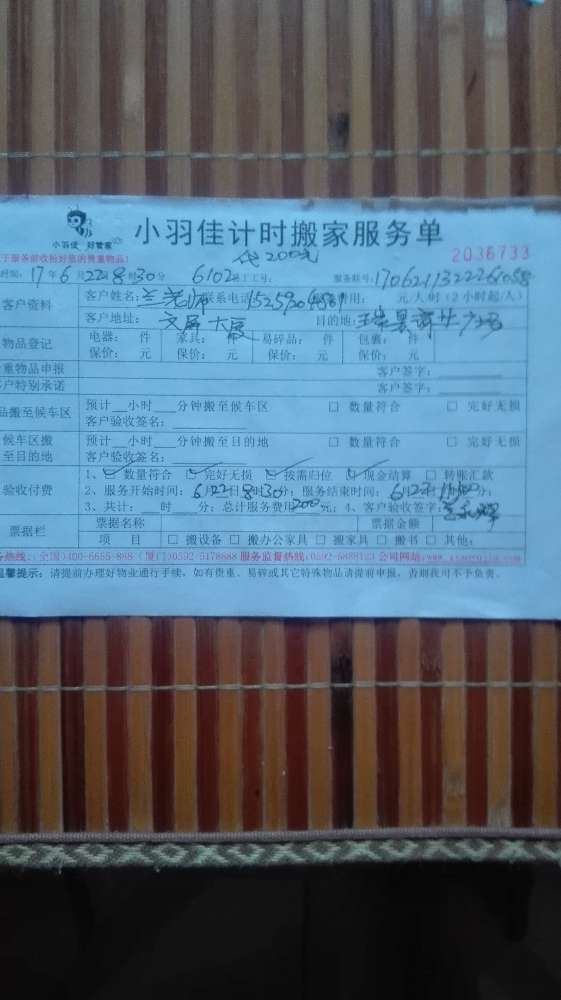 小羽佳 好管家
小羽佳计时搬家服务单
于服务前收拾好您的贵重物品!
200元
2036733
时间: 17年6月22日8时30分 6102 员工工号: 服务联号:
客户资料 客户姓名: 联系电话 费用: 元/人/时(2小时起/人)
客户地址: 文屏大厦 目的地:
物品登记 电器: 件 家具: 件 易碎品: 件 包裹: 件
保价: 元 保价: 元 保价: 元 保价: 元
重物品申报 客户签字:
客户特别承诺 客户签字:
品搬至候车区 预计 小时 分钟搬至候车区 □ 数量符合 □ 完好无损
客户验收签名:
候车区搬至目的地 预计 小时 分钟搬至目的地 □ 数量符合 □ 完好无损
客户验收签名:
验收付费 1、☑ 数量符合 ☑ 完好无损 ☑ 按需归位 ☑ 现金结算 □ 转账汇款
2、服务开始时间: 6月22日8时30分; 服务结束时间: 6月22日 时 分;
3、共计: 时 分; 总计服务费用200元; 4、客户验收签字:
票据栏 票据名称 票据金额
项 目 □ 搬设备 □ 搬办公家具 □ 搬家具 □ 搬书 □ 其他:
务热线: (全国)400-6655-888 (厦门)0592-5178888 服务监督热线:0592-5888123 公司网站:
温馨提示: 请提前办理好物业通行手续。如有贵重、易碎或其它特殊物品请提前申报, 否则我司不予负责。